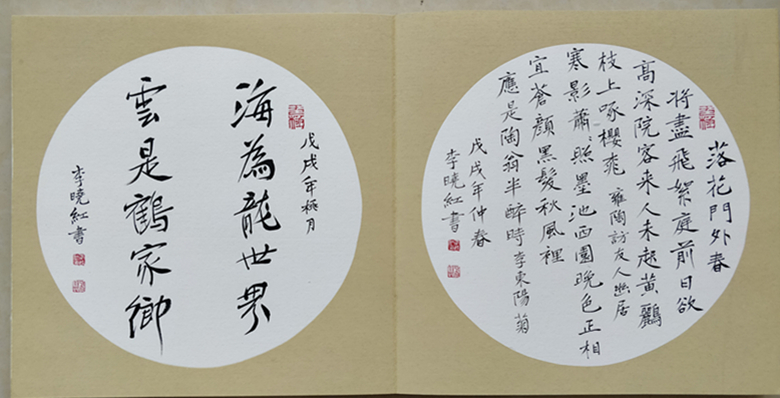 落花門外春
将盡飛絮庭前日欲
高深院客来人未起黄鸝
枝上啄櫻桃 雍陶訪友人幽居
寒影蕭〻照墨池西園晚色正相
宜蒼顏黑髮秋風裡
應是陶翁半醉時李東陽菊
戊戌年仲春
李曉紅書
戊戌年月
海為龍世界
雲是鶴家鄉
李曉紅書